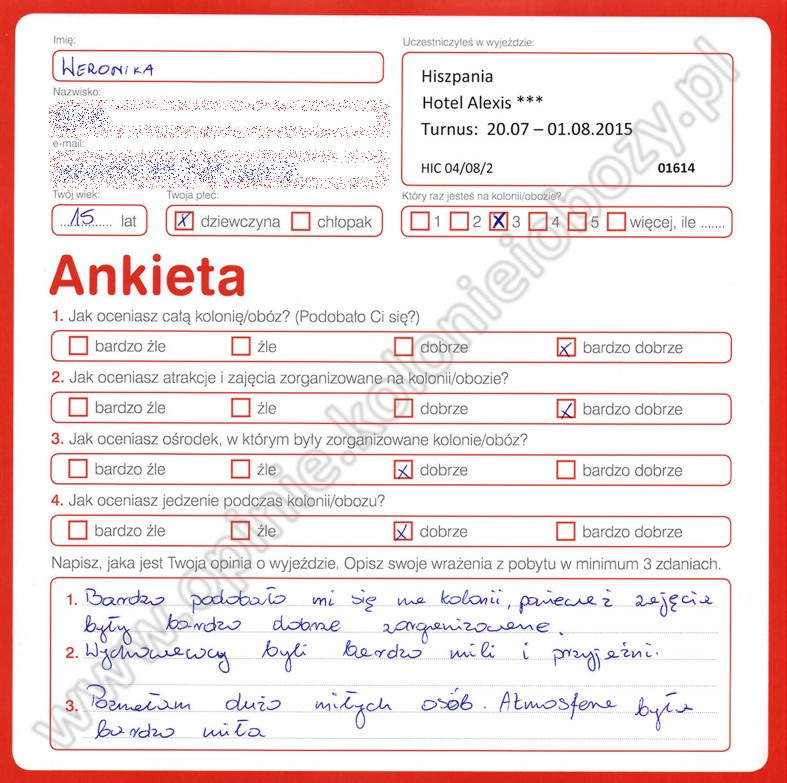 Imię:
WERONIKA
Nazwisko:
e-mail:
Twój wiek:
15 lat
Twoja płeć:
x dziewczyna chłopak
Uczestniczyłeś w wyjeździe:
Hiszpania
Hotel Alexis ***
Turnus: 20.07 – 01.08.2015
HIC 04/08/2 01614
Który raz jesteś na kolonii/obozie?
1 2 x 3 4 5 więcej, ile .......
Ankieta
1. Jak oceniasz całą kolonię/obóz? (Podobało Ci się?)
bardzo źle źle dobrze x bardzo dobrze
2. Jak oceniasz atrakcje i zajęcia zorganizowane na kolonii/obozie?
bardzo źle źle dobrze x bardzo dobrze
3. Jak oceniasz ośrodek, w którym były zorganizowane kolonie/obóz?
bardzo źle źle x dobrze bardzo dobrze
4. Jak oceniasz jedzenie podczas kolonii/obozu?
bardzo źle źle x dobrze bardzo dobrze
Napisz, jaka jest Twoja opinia o wyjeździe. Opisz swoje wrażenia z pobytu w minimum 3 zdaniach.
1. Bardzo podobało mi się na kolonii, ponieważ zajęcia
były bardzo dobrze zorganizowane.
2. Wychowawcy byli bardzo mili i przyjeźni.
3. Poznałam dużo miłych osób. Atmosfera była
bardzo miła
www.opinie.kolonieiobozy.pl